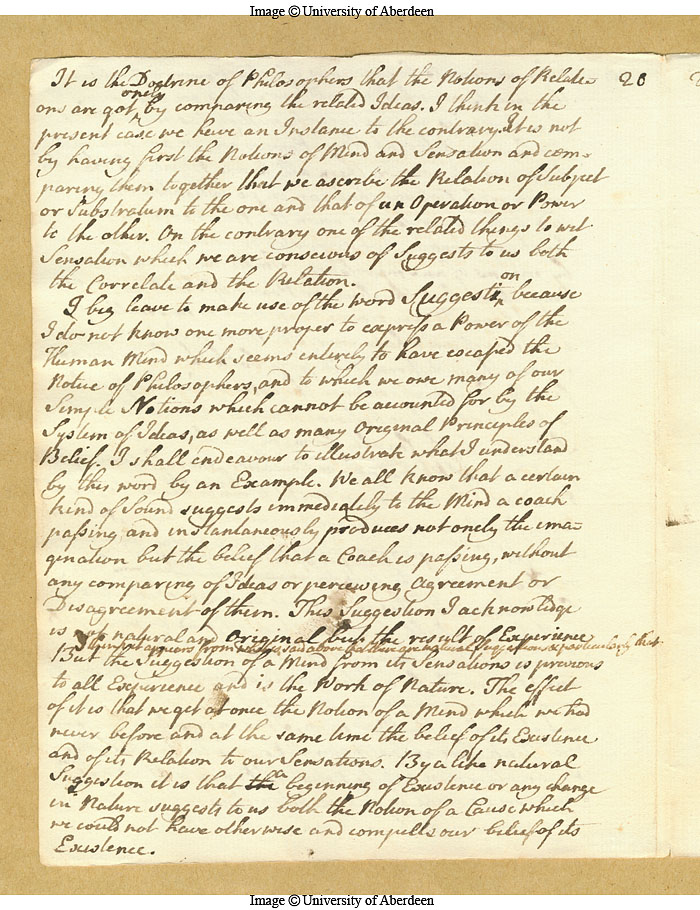 Image © University of Aberdeen
It is the Doctrine of Philosophers that the Notions of Relati- 20
onely
ons are got by comparing the related Ideas. I think in the
present case we have an Instance to the contrary. It is not
by having first the Notions of Mind and Sensation and com-
paring them together that we ascribe the Relation of Subject
or Substratum to the one and that of an Operation or Power
to the other. On the contrary one of the related things to wit
Sensation which we are conscious of Suggests to us both
the Correlate and the Relation.
on
I beg leave to make use of the word Suggesti because
I do not know one more proper to express a Power of the
Human Mind which seems entirely to have escaped the
Notice of Philosophers, and to which we owe many of our
Simple Notions which cannot be accounted for by the
System of Ideas, as well as many Original Principles of
Belief. I shall endeavour to illustrate what I understand
by this word by an Example. We all know that a certain
kind of Sound suggests immediately to the Mind a coach
passing and instantaneously produces not onely the ima-
gination but the belief that a Coach is passing, without
any comparing of Ideas or perceiving Agreement or
Disagreement of them. This Suggestion I acknowledge
is not natural and Original but the result of Experience
I think it appears from what is said above that there are natural Suggestions & particularly that
But the Suggestion of a Mind from its Sensations is previous
to all Experience and is the Work of Nature. The effect
of it is that we get at once the Notion of a Mind which we had
never before and at the same time the belief of its Existence
and of its Relation to our Sensations. By a like natural
a
Suggestion it is that the beginning of Existence or any change
in Nature suggests to us both the Notion of a Cause which
we could not have otherwise and compells our belief of its
Existence.
Image © University of Aberdeen